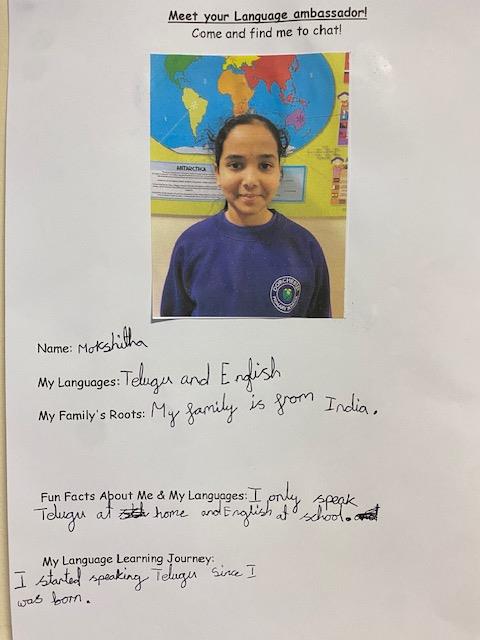 Meet your Language ambassador!
Come and find me to chat!
ANTARCTICA
DORCHESTER
PRIMARY SCHOOL
Name: Mokshitha
My Languages: Telugu and English
My Family's Roots: My family is from India.
Fun Facts About Me & My Languages: I only speak
Telugu at home and English at school.
My Language Learning Journey:
I started speaking Telugu since I
was born.